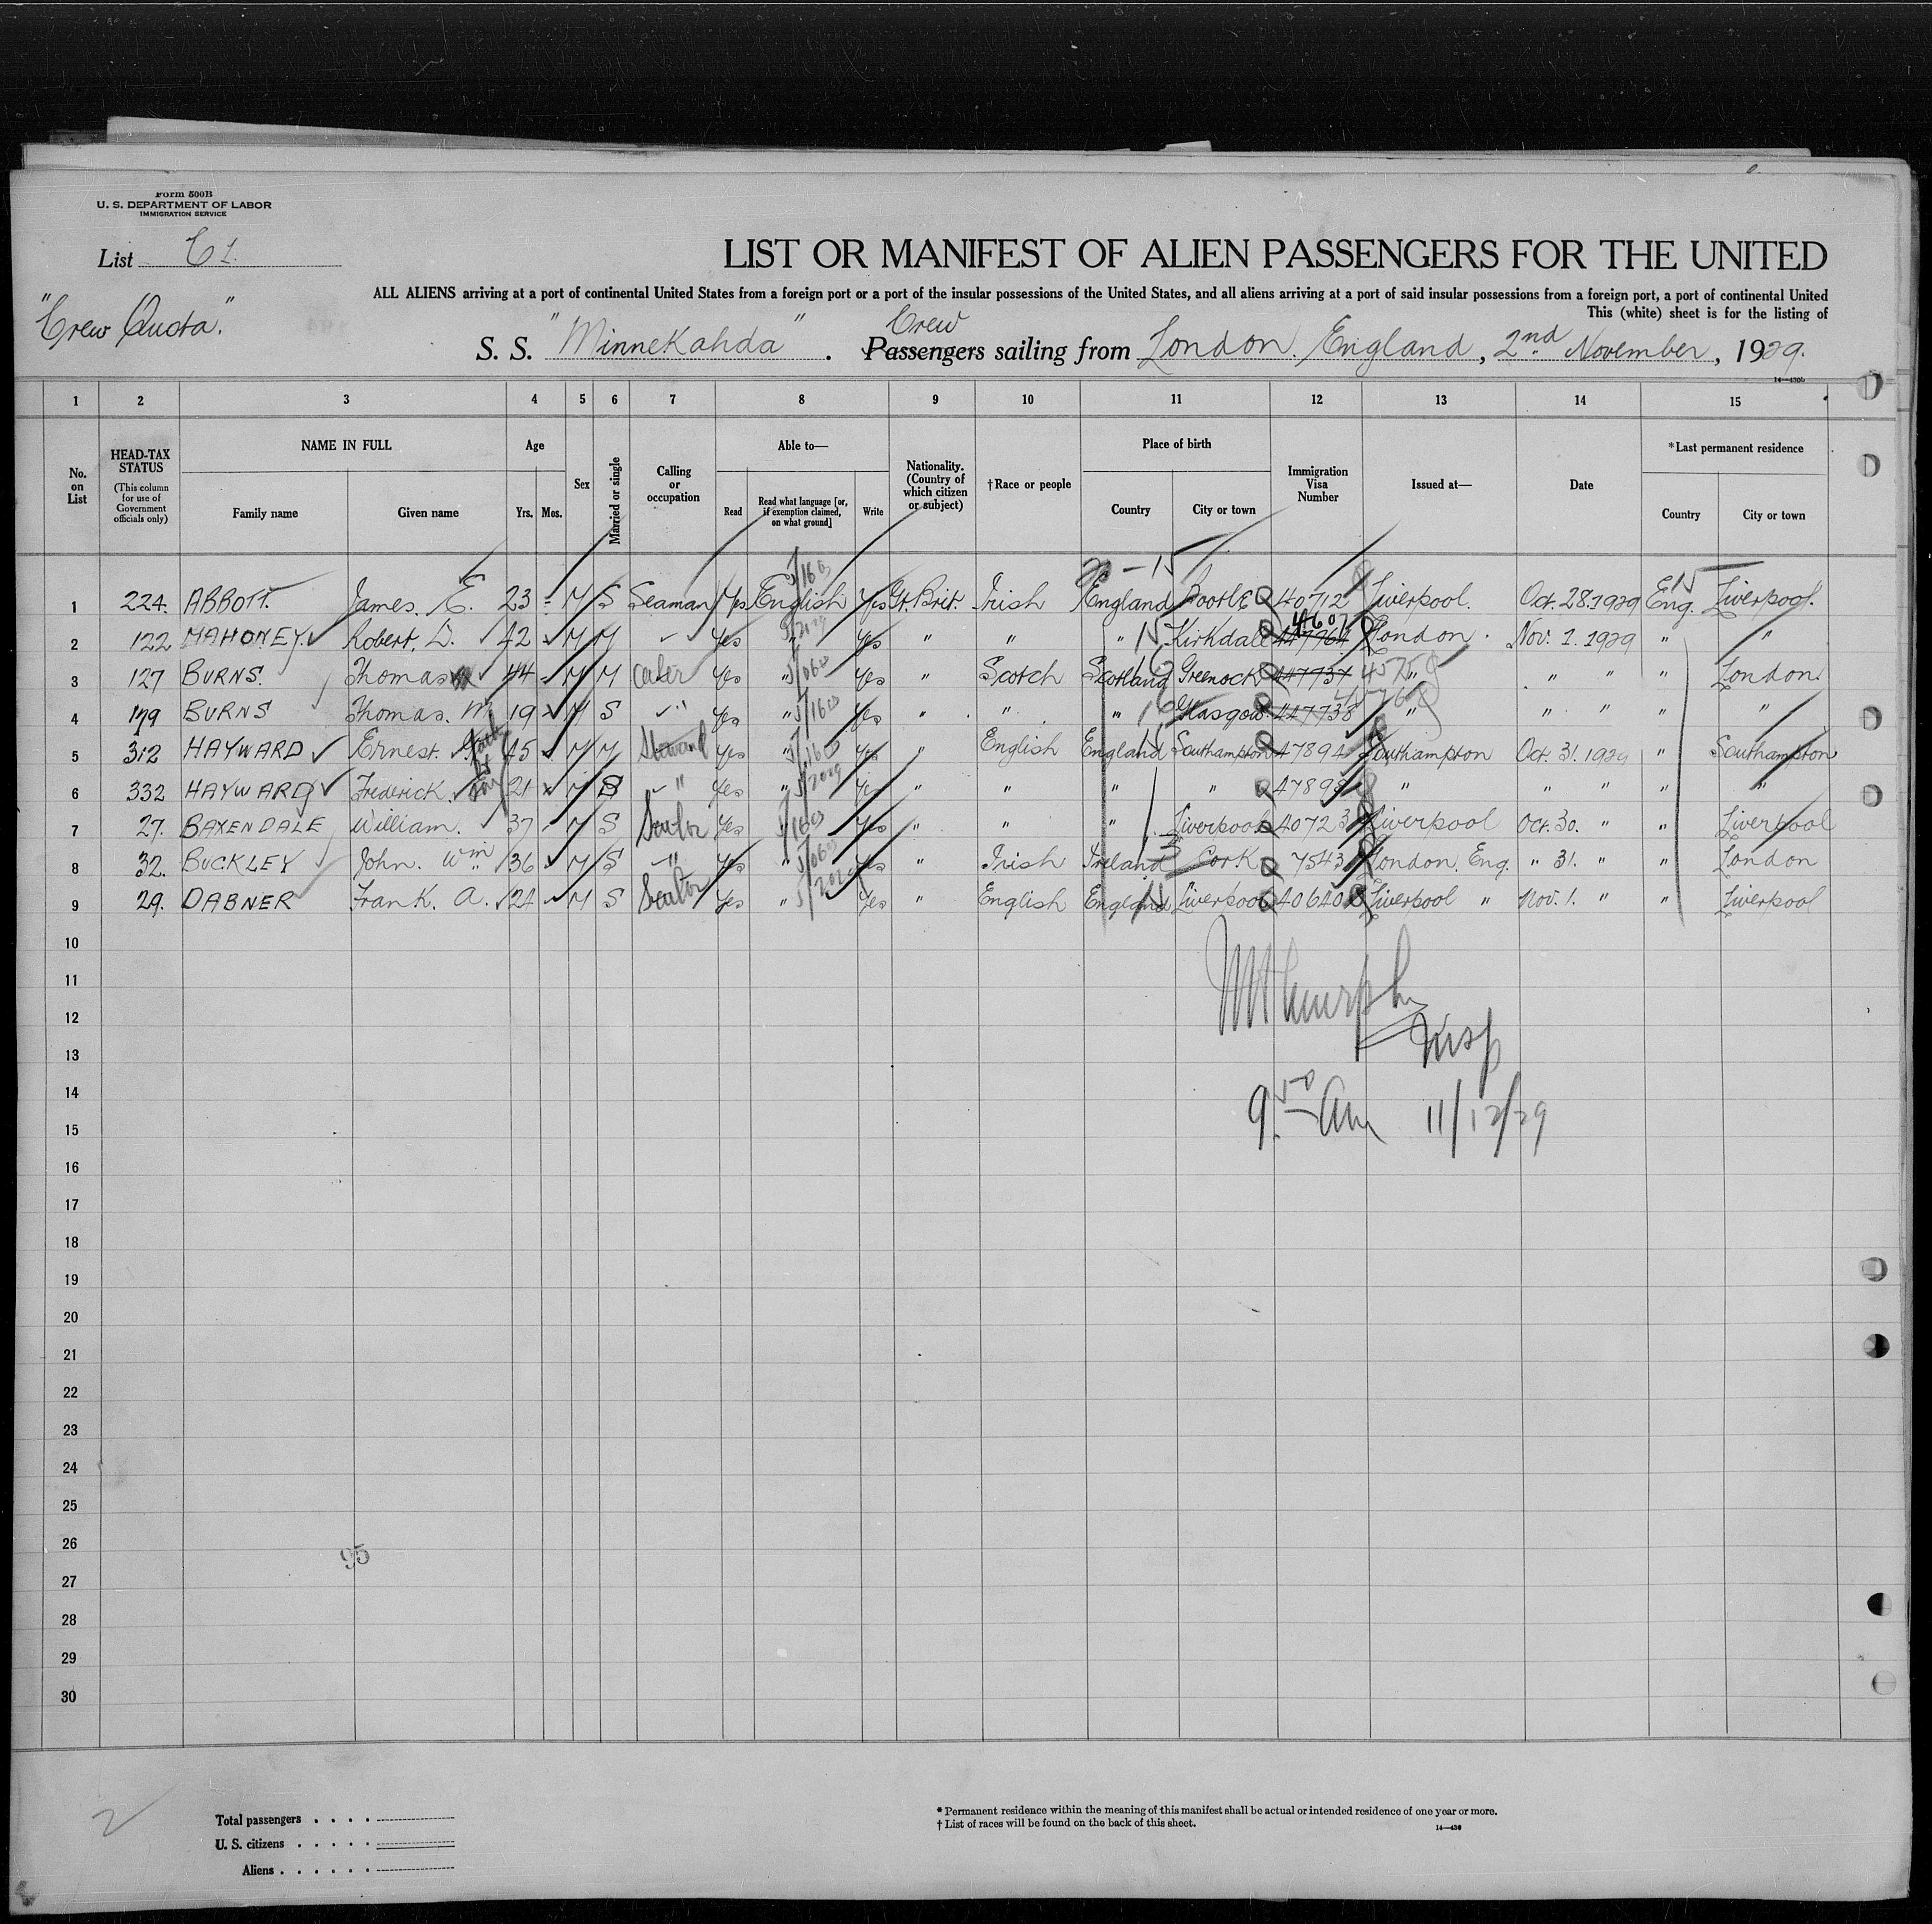 Form 500B
U. S. DEPARTMENT OF LABOR
IMMIGRATION SERVICE
List E1.
LIST OR MANIFEST OF ALIEN PASSENGERS FOR THE UNITED
ALL ALIENS arriving at a port of continental United States from a foreign port or a port of the insular possessions of the United States, and all aliens arriving at a port of said insular possessions from a foreign port, a port of continental United
This (white) sheet is for the listing of
"Crew Quota."
Crew
S. S. "Minnekahda". Passengers sailing from London. England, 2nd November, 1929.
14—430b
1 2 3 4 5 6 7 8 9 10 11 12 13 14 15
No. on List
HEAD-TAX STATUS (This column for use of Government officials only)
NAME IN FULL
Family name
Given name
Age
Yrs.
Mos.
Sex
Married or single
Calling or occupation
Able to—
Read
Read what language [or, if exemption claimed, on what ground]
Write
Nationality. (Country of which citizen or subject)
†Race or people
Place of birth
Country
City or town
Immigration Visa Number
Issued at—
Date
*Last permanent residence
Country
City or town
20-15
1 224. ABBOTT. James. E. 23 M S Seaman Yes English Yes Gt. Brit. Irish England Bootle Q 40712 Liverpool. Oct. 28. 1929 Eng. 15 Liverpool.
2 122 MAHONEY. Robert. D. 42 M M Yes " Yes " " " 15 Kirkdale Q 447964 London. Nov. 1. 1929 " "
3 127 BURNS. Thomas 44 M M Yes " Yes " Scotch Scotland Greenock Q 447737 " " " " London.
4 179 BURNS Thomas. M 19 M S " Yes " Yes " " " Glasgow. Q 447738 " " " " "
5 312 HAYWARD Ernest. 45 M M Steward Yes " Yes " English England Southampton Q 47894 Southampton Oct. 31. 1929 " Southampton
6 332 HAYWARD Frederick. Son 21 M S " Yes " Yes " " " " Q 47898 " " " " "
7 27. BAXENDALE William. 37 M S Yes Yes " " " Liverpool Q 40723 Liverpool Oct. 30. " " Liverpool
8 32. BUCKLEY John. Wm 36 M S " Yes Yes " Irish Ireland Cork Q 7543 London, Eng. " 31. " " London
9 29. DABNER Frank. A. 24 M S Yes " Yes " English England Liverpool Q 40640 Liverpool " Nov. 1. " " Liverpool
10
11
12
13
Insp
14
9.50 Am 11/12/29
15
16
17
18
19
20
21
22
23
24
25
26
95
27
28
29
30
2
Total passengers
U. S. citizens
Aliens
* Permanent residence within the meaning of this manifest shall be actual or intended residence of one year or more.
† List of races will be found on the back of this sheet.
14—430